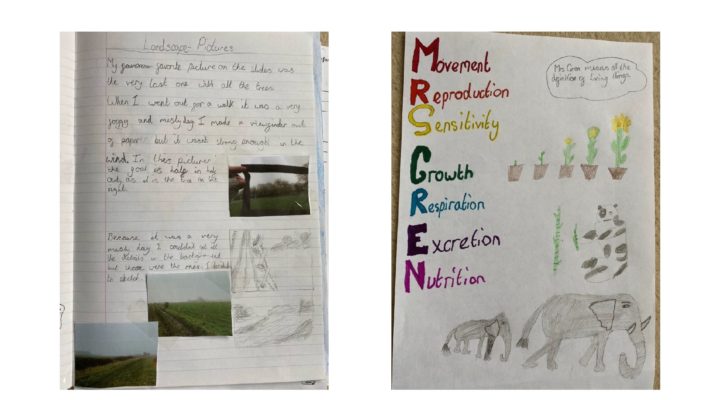 Landscape - Pictures
My favorite picture on the slides was
the very last one with all the trees.
When I went out for a walk it was a very
foggy and mistyday I made a viewfinder out
of paper but it wasnt strong enough in the
wind. In this picture
the goal is half in half
out, as it is the tree on the
right.
Because it was a very
misty day I couldnt see all
the details in the
but these were the ones I
to sketch.
Movement
Reproduction
Sensitivity
Growth
Respiration
Excretion
Nutrition
Mrs Gren means all the
definition of living things.